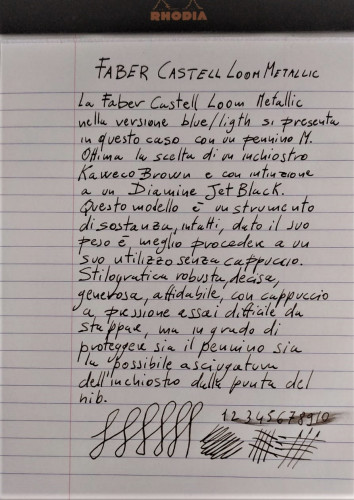 RHODIA
FABER CASTELL LOOM METALLIC
La Faber Castell Loom Metallic
nella versione blue/ligth si presenta
in questo caso con un pennino M.
Ottima la scelta di un inchiostro
Kaweco Brown e con intinzione
a un Diamine Jet Black.
Questo modello è un strumento
di sostanza, infatti, dato il suo
peso è meglio procedere a un
suo utilizzo senza cappuccio.
Stilografica robusta, decisa,
generosa, affidabile, con cappuccio
a pressione assai difficile da
stappare, ma in grado di
proteggere sia il pennino sia
la possibile asciugatura
dell'inchiostro dalla punta del
nib.
12345678910